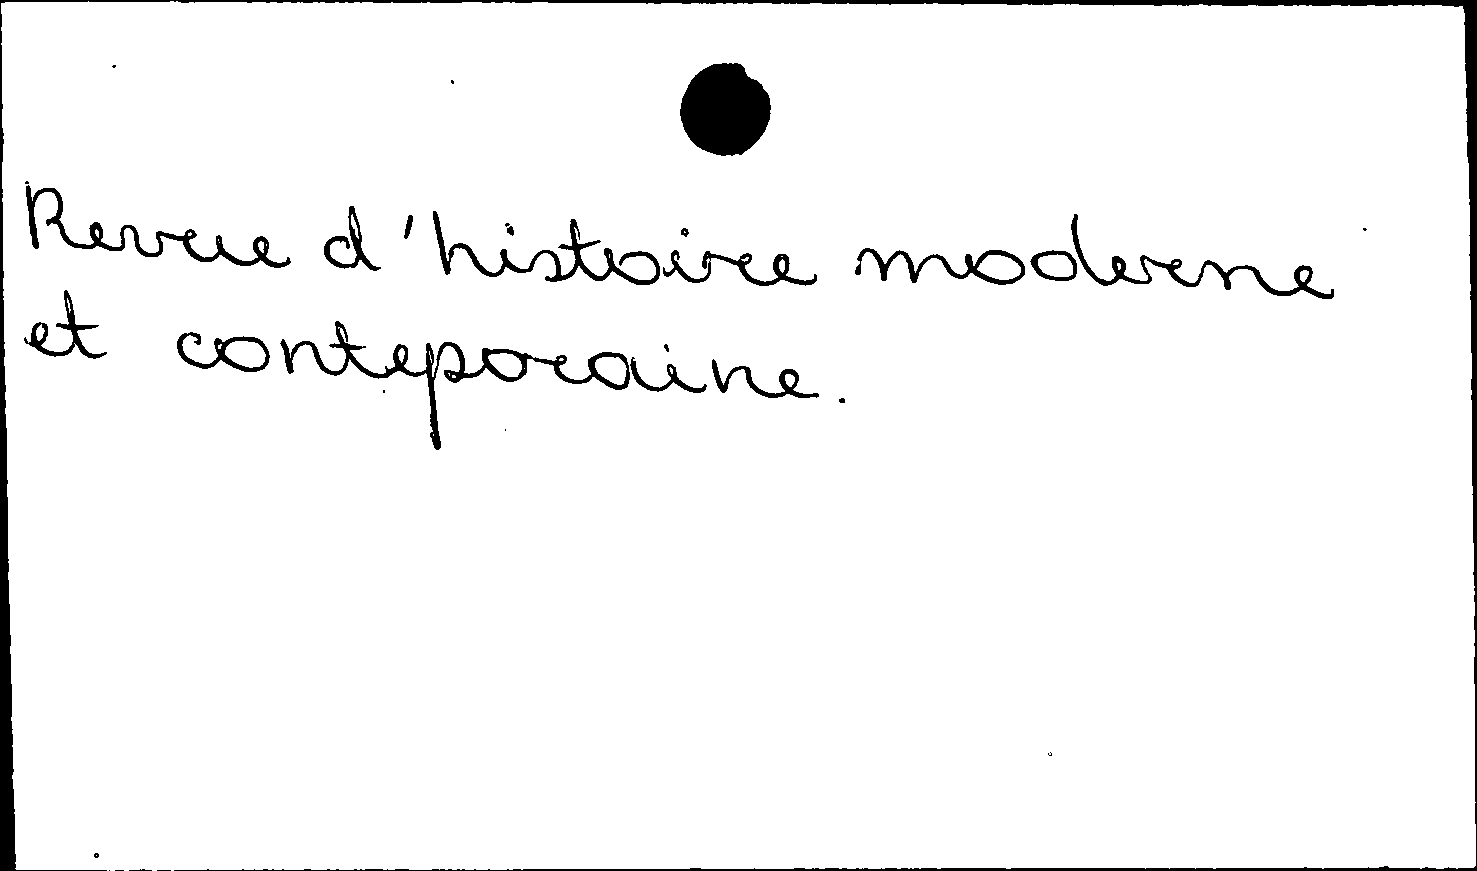 Revue d'histoire moderne
et conteporaine.